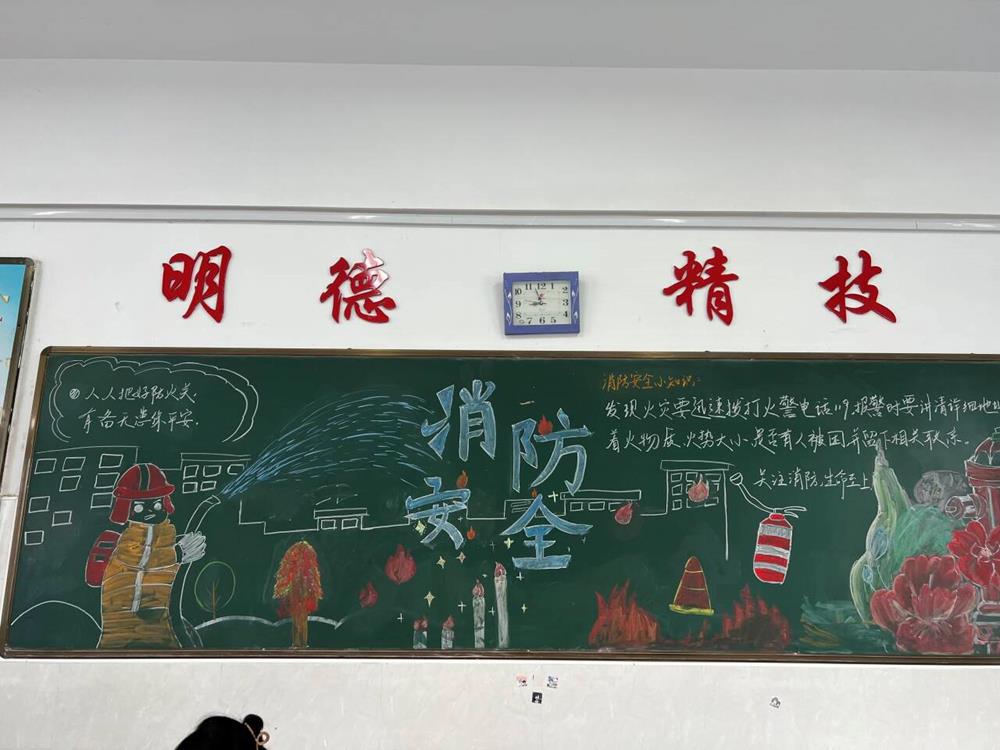 明德 精技
12
11
1
10
2
9
3
8
4
7
6
5
人人把好防火关,
有备无患保平安.
消防
安全
消防安全小知识:
发现火灾要迅速拨打火警电话119,报警时要讲清详细地址
着火物质,火势大小,是否有人被困并留下相关联系.
关注消防,生命至上